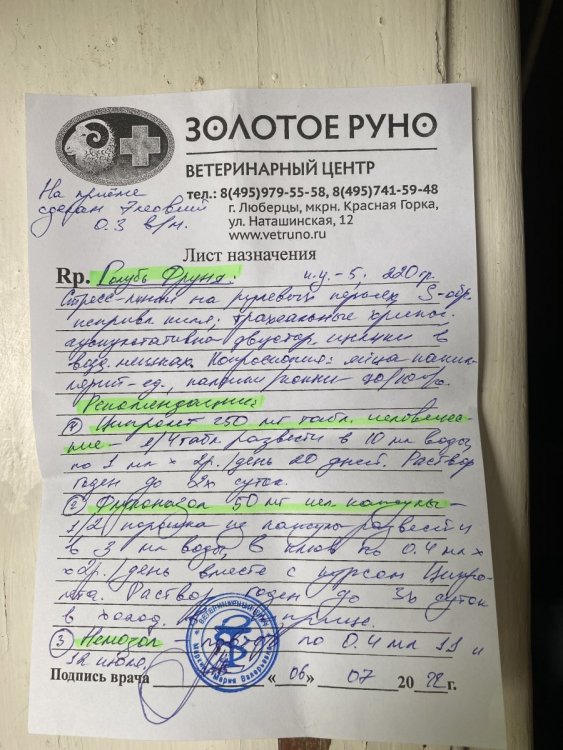 ЗОЛОТОЕ РУНО
ВЕТЕРИНАРНЫЙ ЦЕНТР
тел.: 8(495)979-55-58, 8(495)741-59-48
г. Люберцы, мкрн. Красная Горка,
ул. Наташинская, 12
www.vetruno.ru
На приёме
сделан
0.3 в/м.
Лист назначения
Rp. Голубь Фруня: и.у.-5, 220 гр.
Стресс-линии на рулевых перьях, S-обр.
искривл. киля, трахеальные хрипы.
аускультативно двустор. в
возд. мешках. Копроскопия: яйца капил-
ед., палочки/кокки 90/10%.
Рекомендации:
1 Ципролет 250 мг табл. человечес-
кие - 1/4 табл развести в 10 мл воды,
по 1 мл х 2р./день 20 дней. Раствор
годен до 2х суток.
2 Флуконазол 50 мг чел. капсулы -
1/2 порошка из капсулы развести
в 3 мл воды, в клюв по 0.4 мл х
х 2р./день вместе с курсом Ципро-
лета. Раствор годен до 3х суток
в холод.
3 Немозол - по 0.4 мл 11 и
12 июля,
Подпись врача «06» 07 2022 г.